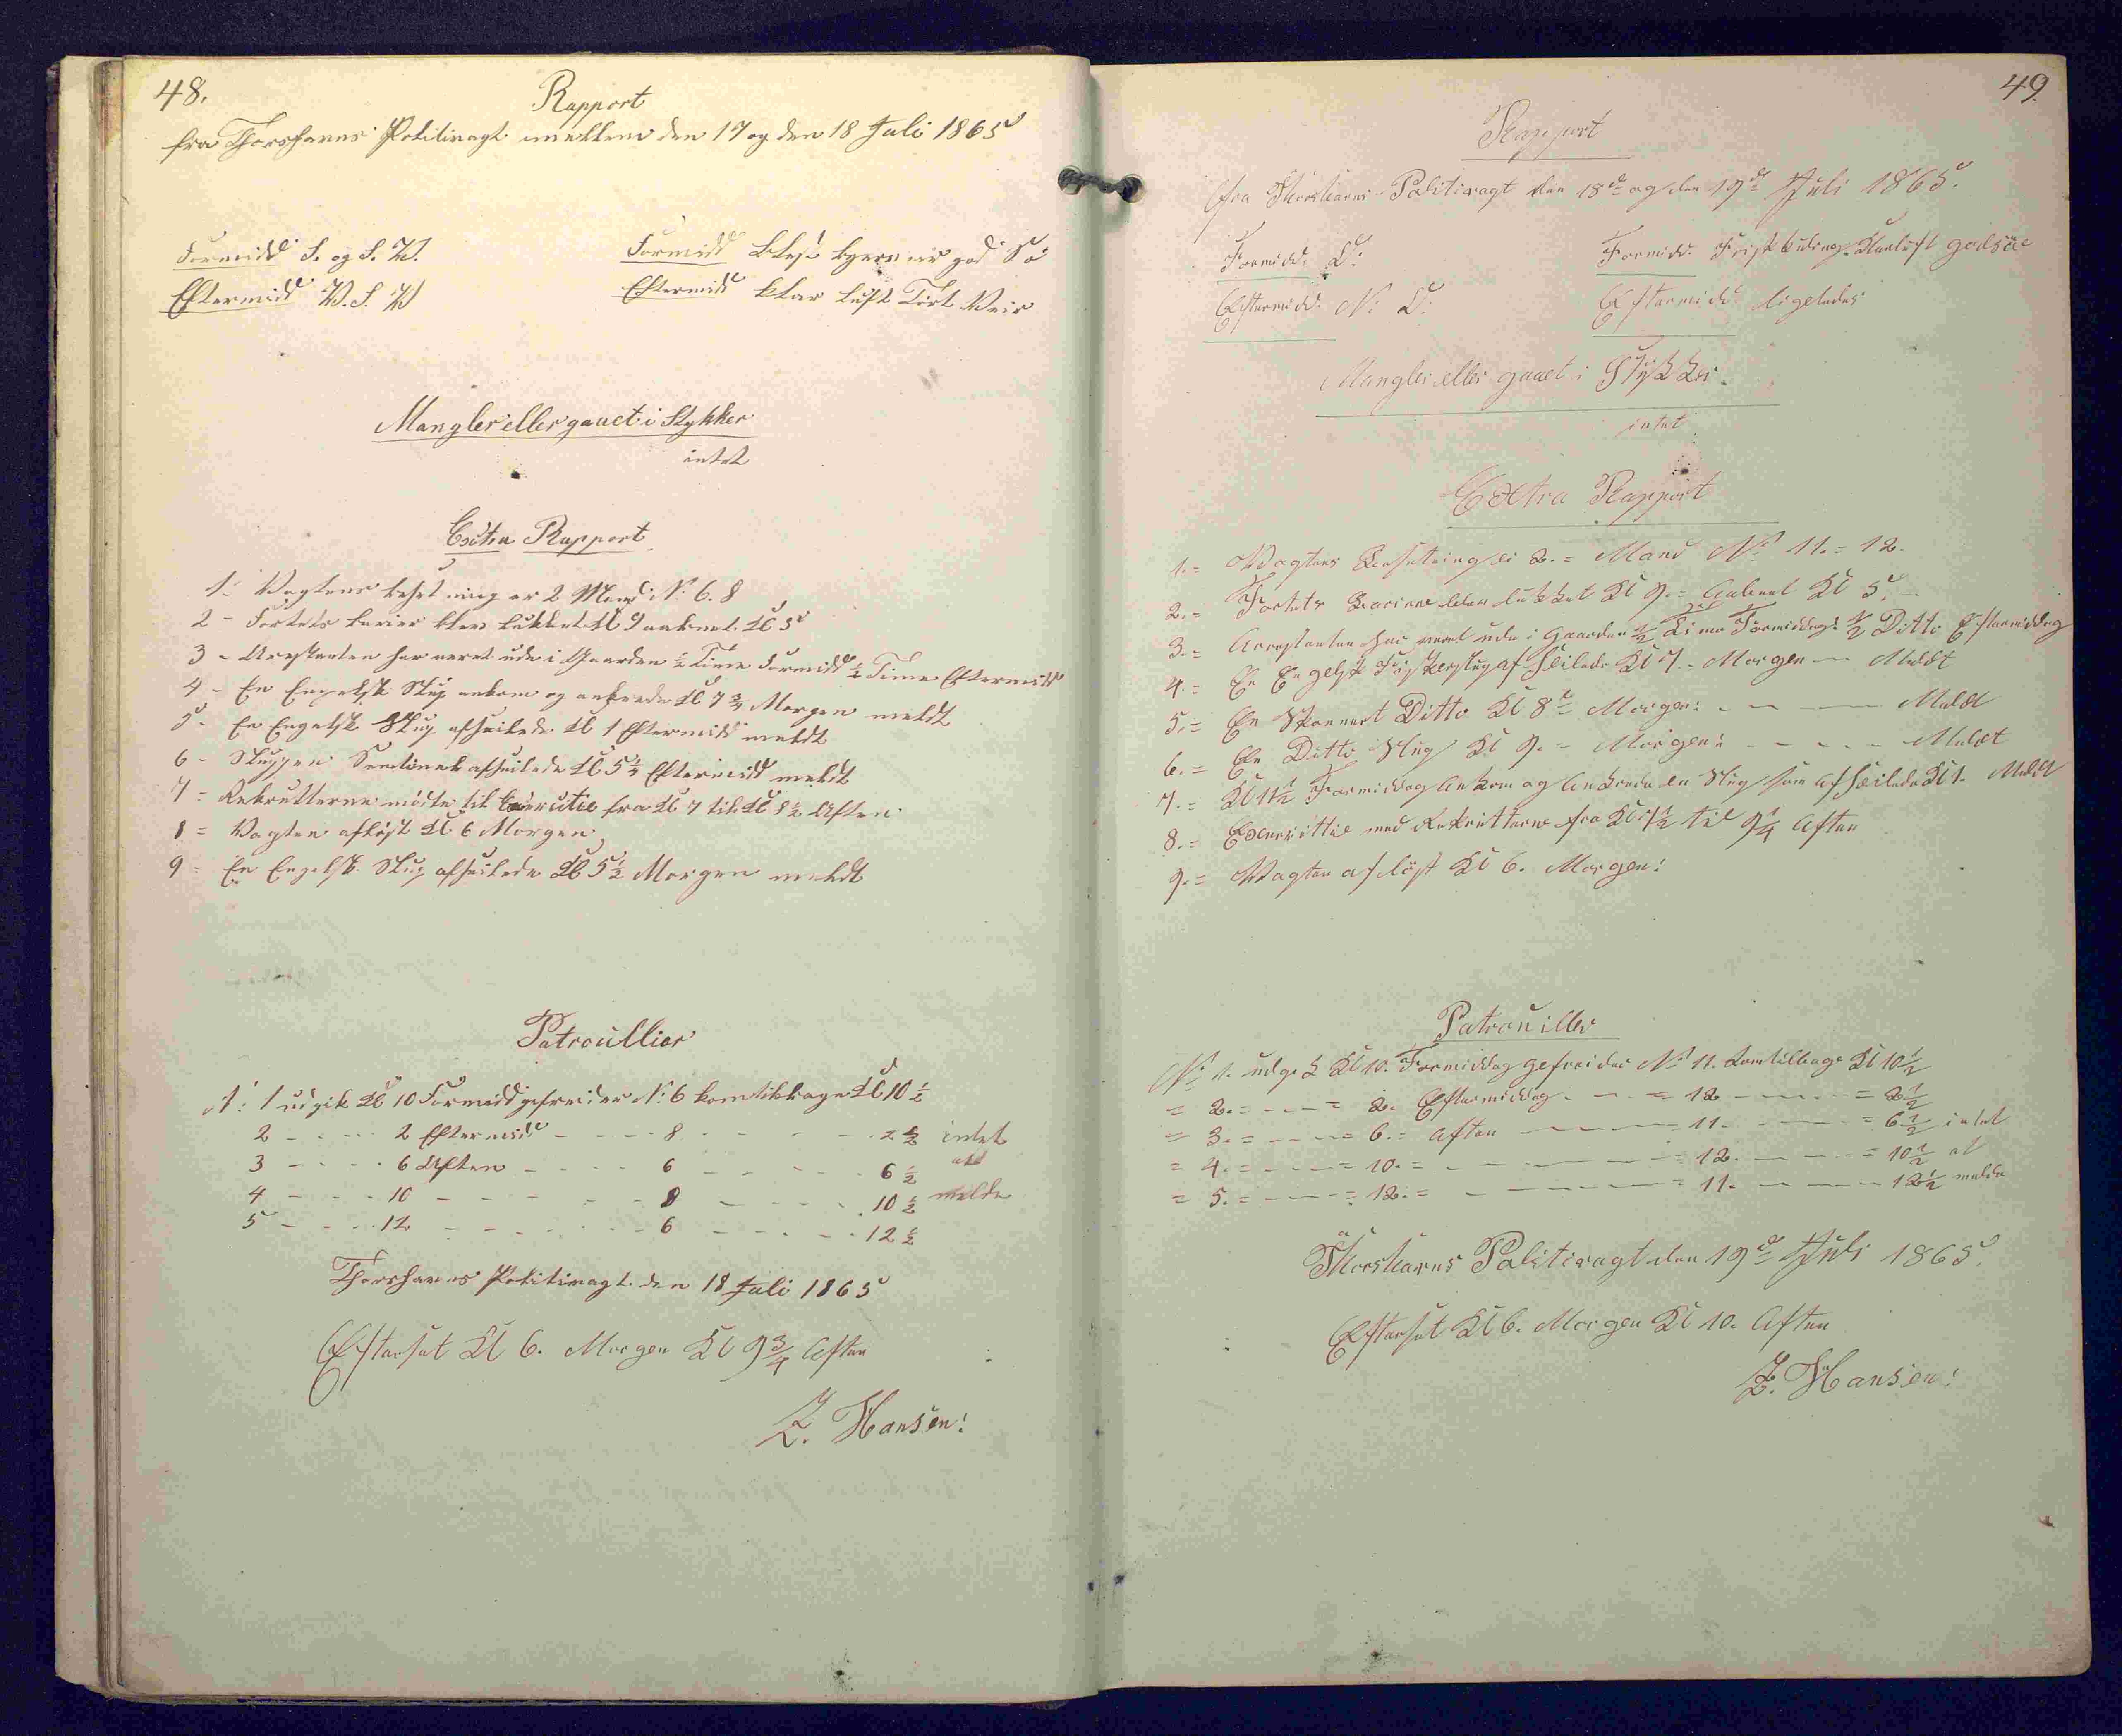 48.
Rapport
fra Thorshavns Politivagt imellem den 17 og den 18 Juli 1865
Formidd S. og S. W.
Formidd Blest Byger nir god Sö
Eftermidd W. S. W
Eftermidd klar Luft Tört Veir
Mangler eller gaaet i Stykker
intet
Extra Rapport
1. Vagtens besetning er 2 Mand N. 6. 8
2 - Fortets barier blev lukket Kl 9 aabnet Kl 5
3 - Arestanten har veret ude i Gaarden ½ Time Formidd ½ Time Eftermidd
4 - En Engelsk Slup ankom og ankrede Kl 7¾ Morgen meldt
5 - En Engelsk Slup afseilede Kl 1 Eftermidd meldt
6 - Sluppen afseilede Kl 5½ Eftermidd meldt
7 = Rekrutterne mödte til Exersitie fra Kl 7 til Kl 8½ Aften
8 = Vagten aflöst Kl 6 Morgen
9 = En Engelsk Slup afseilede Kl 5½ Morgen meldt
Patroullier
N: 1 udgik Kl 10 Formidd gefreider N: 6 kom tilbage Kl 10½
2 - - - - 2 Eftermidd - - - 8 - - - - 2½ intet
3 - - - - 6 Aften - - - - 6 - - - - 6½ att
4 - - - - 10 - - - - - 8 - - - - 10½ melde
5 - - - - 12 - - - - - 6 - - - - 12½
Thorshavns Politivagt den 18 Juli 1865
Efterset Kl 6. Morgen Kl 9¾ Aften
Z. Hansen!
49.
Rapport
fra Thorshavns Politivagt den 18de og den 19de Juli 1865.
Formidd. O:
Formidd. Frisk Kuling Klarluft godsöe
Eftermidd. N: O:
Eftermidd: ligeledes
Mangler eller gaaet i Stykker.
intet
Extra Rapport
1. = Vagtens Besetning er 2. = Mand No 11. = 12.
2. = Fortets Bariere blev lukket Kl 9. = Aabnet Kl 5. -
3. = Arrestanten har veret ude i Gaarden ½ Time Formiddag: ½ Ditto Eftermiddag
4. = En Engelsk Fiskerslup afseilede Kl 7. - Morgen - - Meldt
5. = En Skonnert Ditto Kl 8 = Morgen: - - - Meldt
6. = En Ditto Slup Kl 9. = Morgen: - - - - Meldt
7. = Kl 11½ Formiddag Ankom og Ankrede en Slup som afseilede Kl 1. Meldt
8. = Exersittie med Rekrutterne fra Kl 7½ til 9¼ Aften
9. = Vagten aflöst Kl 6. Morgen!
Patrouiller
No 1. udgik Kl 10. Formiddag gefreider No 11. kom tilbage Kl 10½
= 2. = - - = 2. Eftermiddag. - - = 12 - - - = 2½
= 3. = - - = 6. = Aften - - - 11. - - - = 6½ intet
= 4. = - - = 10. = - - - - = 12. - - - = 10½ at
= 5. = - - = 12. = - - - - = 11. - - - 12½ melde
Thorshavns Politivagt den 19de Juli 1865.
Efterset Kl 6. Morgen Kl 10. Aften
Z. Hansen!